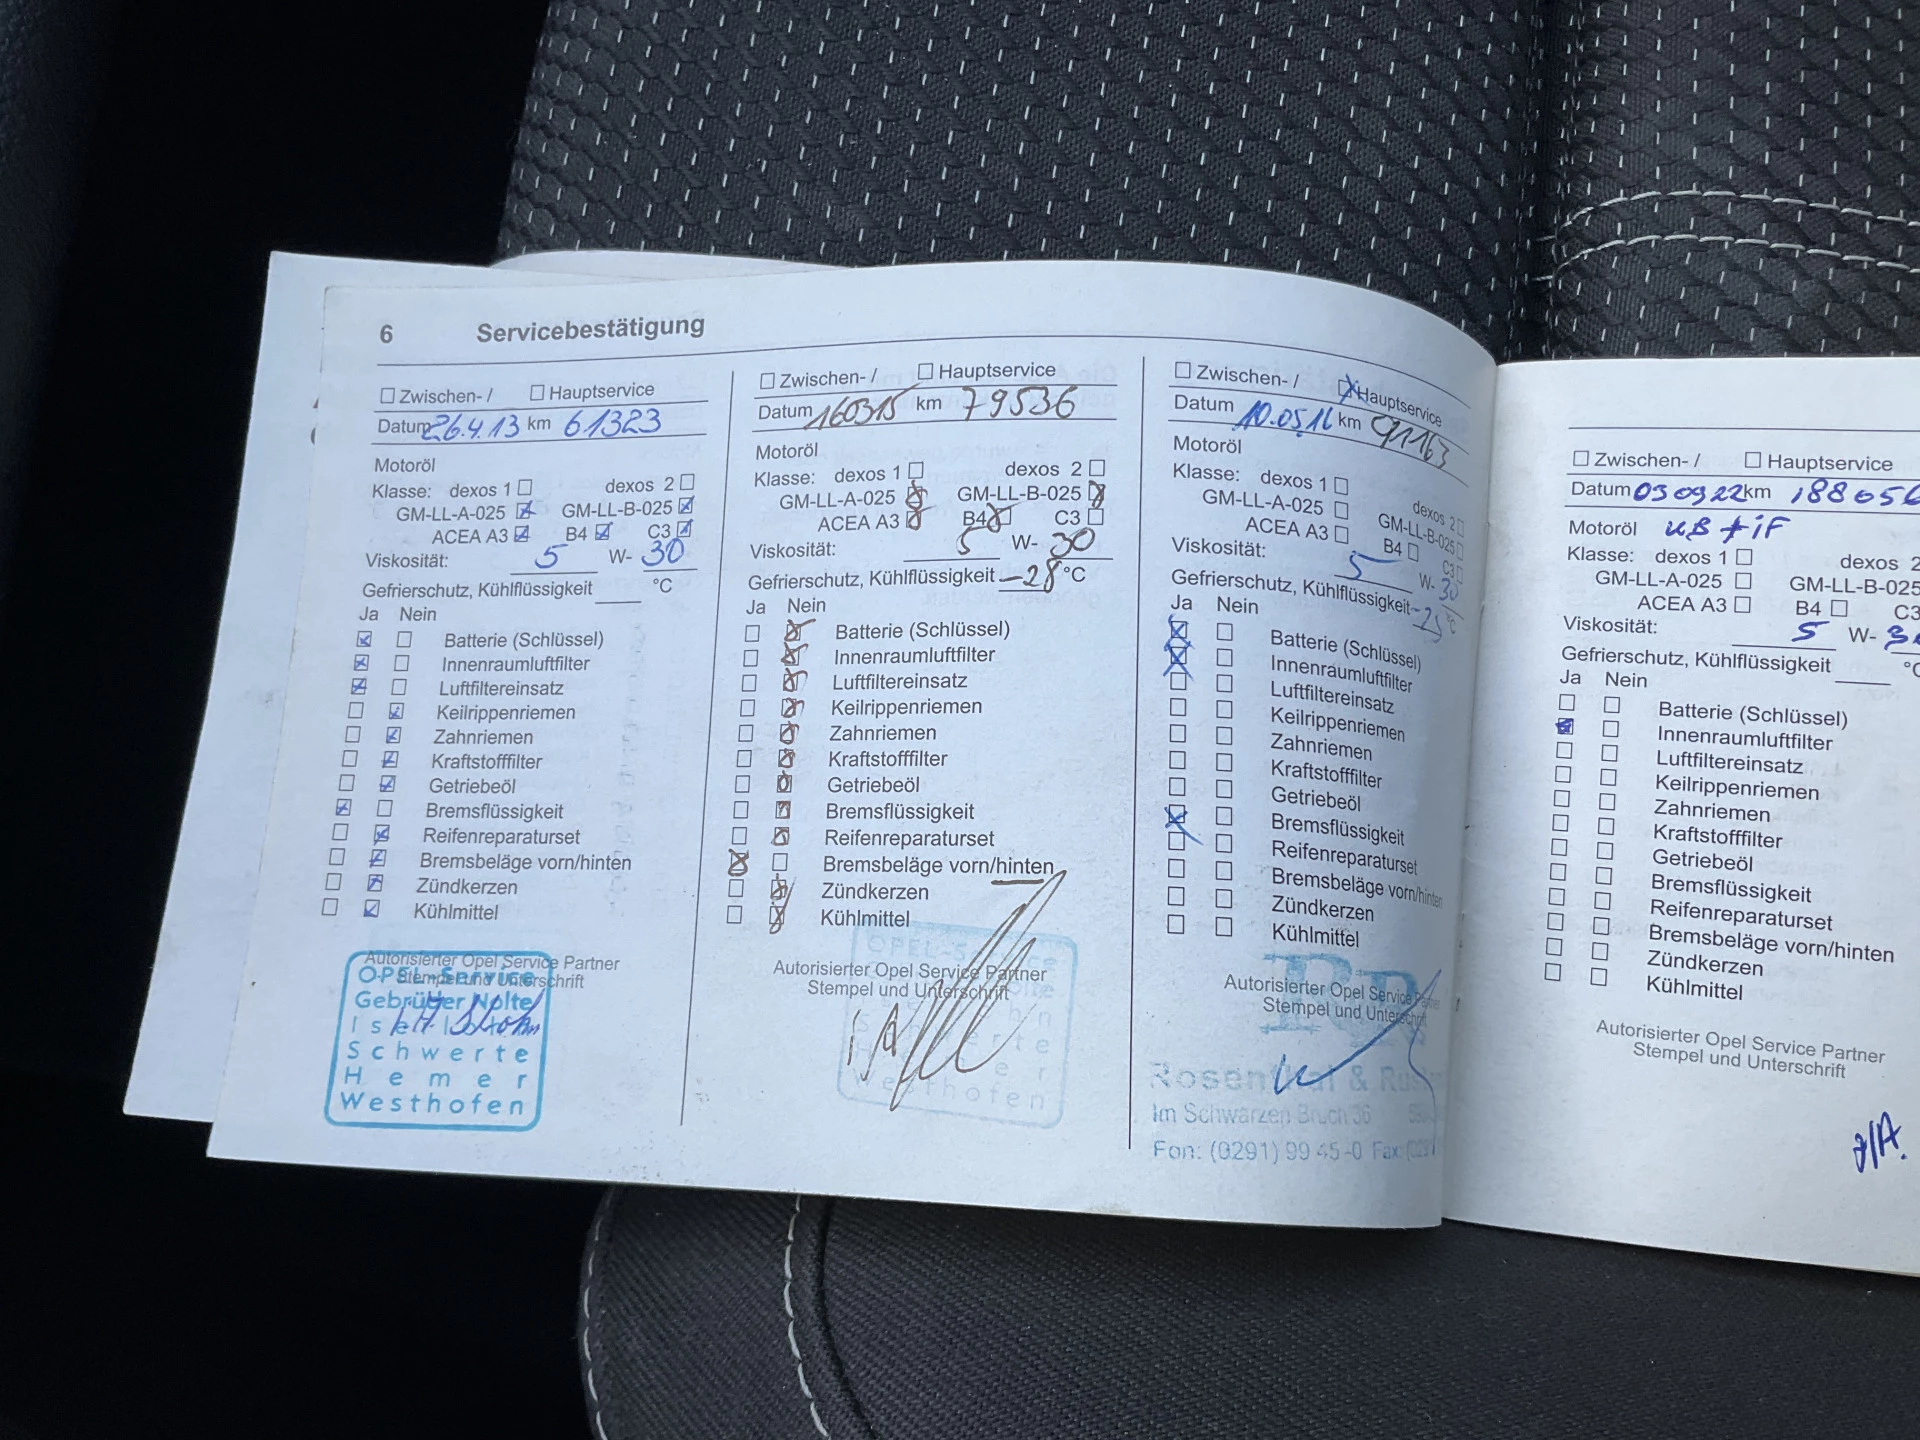 6 Servicebestätigung
☐ Zwischen- / ☐ Hauptservice
Datum 26.4.13 km 61323
Motoröl
Klasse: dexos 1 ☐ dexos 2 ☐
GM-LL-A-025 ☒ GM-LL-B-025 ☒
ACEA A3 ☒ B4 ☒ C3 ☒
Viskosität: 5 W- 30
Gefrierschutz, Kühlflüssigkeit ____ °C
Ja Nein
☒ ☐ Batterie (Schlüssel)
☒ ☐ Innenraumluftfilter
☒ ☐ Luftfiltereinsatz
☐ ☒ Keilrippenriemen
☐ ☒ Zahnriemen
☐ ☒ Kraftstofffilter
☐ ☒ Getriebeöl
☒ ☐ Bremsflüssigkeit
☐ ☒ Reifenreparaturset
☐ ☒ Bremsbeläge vorn/hinten
☐ ☒ Zündkerzen
☐ ☒ Kühlmittel
Autorisierter Opel Service Partner
Stempel und Unterschrift
OPEL-Service
Gebrüder Nolte
Iserlohn
Schwerte
Hemer
Westhofen
☐ Zwischen- / ☐ Hauptservice
Datum 160315 km 79536
Motoröl
Klasse: dexos 1 ☐ dexos 2 ☐
GM-LL-A-025 ☒ GM-LL-B-025 ☒
ACEA A3 ☒ B4 ☒ C3 ☐
Viskosität: 5 W- 30
Gefrierschutz, Kühlflüssigkeit -28 °C
Ja Nein
☐ ☒ Batterie (Schlüssel)
☐ ☒ Innenraumluftfilter
☐ ☒ Luftfiltereinsatz
☐ ☒ Keilrippenriemen
☐ ☒ Zahnriemen
☐ ☒ Kraftstofffilter
☐ ☒ Getriebeöl
☐ ☒ Bremsflüssigkeit
☐ ☒ Reifenreparaturset
☒ ☐ Bremsbeläge vorn/hinten
☐ ☒ Zündkerzen
☐ ☒ Kühlmittel
OPEL-Service
Autorisierter Opel Service Partner
Stempel und Unterschrift
Westhofen
☐ Zwischen- / ☒ Hauptservice
Datum 10.05.16 km 91163
Motoröl
Klasse: dexos 1 ☐ dexos 2 ☐
GM-LL-A-025 ☐ GM-LL-B-025 ☐
ACEA A3 ☐ B4 ☐ C3 ☐
Viskosität: 5 W- 30
Gefrierschutz, Kühlflüssigkeit -25 °C
Ja Nein
☒ ☐ Batterie (Schlüssel)
☒ ☐ Innenraumluftfilter
☐ ☐ Luftfiltereinsatz
☐ ☐ Keilrippenriemen
☐ ☐ Zahnriemen
☐ ☐ Kraftstofffilter
☐ ☐ Getriebeöl
☒ ☐ Bremsflüssigkeit
☐ ☐ Reifenreparaturset
☐ ☐ Bremsbeläge vorn/hinten
☐ ☐ Zündkerzen
☐ ☐ Kühlmittel
Autorisierter Opel Service Partner
Stempel und Unterschrift
Rosenthal &
Im Schwarzen Bruch 36
Fon: (0291) 99 45-0 Fax:
☐ Zwischen- / ☐ Hauptservice
Datum 050922 km 188056
Motoröl
Klasse: dexos 1 ☐ dexos 2
GM-LL-A-025 ☐ GM-LL-B-025
ACEA A3 ☐ B4 ☐ C3
Viskosität: 5 W- 3
Gefrierschutz, Kühlflüssigkeit ____ °C
Ja Nein
☐ ☐ Batterie (Schlüssel)
☒ ☐ Innenraumluftfilter
☐ ☐ Luftfiltereinsatz
☐ ☐ Keilrippenriemen
☐ ☐ Zahnriemen
☐ ☐ Kraftstofffilter
☐ ☐ Getriebeöl
☐ ☐ Bremsflüssigkeit
☐ ☐ Reifenreparaturset
☐ ☐ Bremsbeläge vorn/hinten
☐ ☐ Zündkerzen
☐ ☐ Kühlmittel
Autorisierter Opel Service Partner
Stempel und Unterschrift